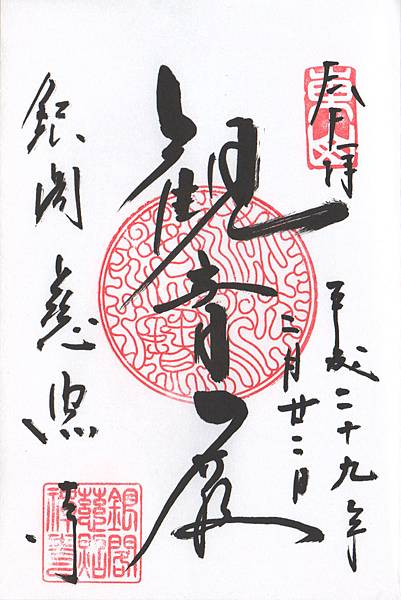 奉拝
平成二十九年
二月廿二日
観音殿
銀閣慈照寺
銀閣
慈照
禅寺